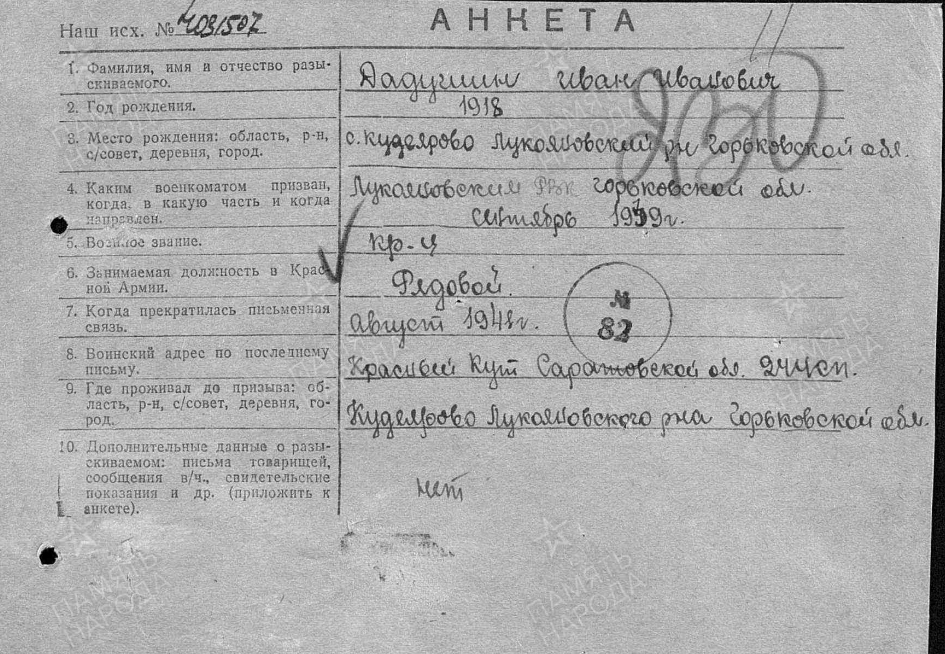 АНКЕТА
Наш исх. №
1. Фамилия, имя и отчество разы-
скиваемого.
Дадушкин Иван Иванович
2. Год рождения.
1918
3. Место рождения: область, р-н,
с/совет, деревня, город.
с. Кудеярово Лукояновский рн Горьковской обл.
4. Каким военкоматом призван,
когда, в какую часть и когда
направлен.
Лукояновским РВК Горьковской обл.
Сентябрь 1939г.
5. Военное звание.
кр-ц
6. Занимаемая должность в Крас-
ной Армии.
Рядовой.
7. Когда прекратилась письменная
связь.
Август 1941г.
№
82
8. Воинский адрес по последнему
письму.
Красный Кут Саратовской обл. 244сп.
9. Где проживал до призыва: об-
ласть, р-н, с/совет, деревня, го-
род.
Кудеярово Лукояновского рна Горьковской обл.
10. Дополнительные данные о разы-
скиваемом: письма товарищей,
сообщения в/ч., свидетельские
показания и др. (приложить к
анкете).
нет
ПАМЯТЬ
НАРОДА